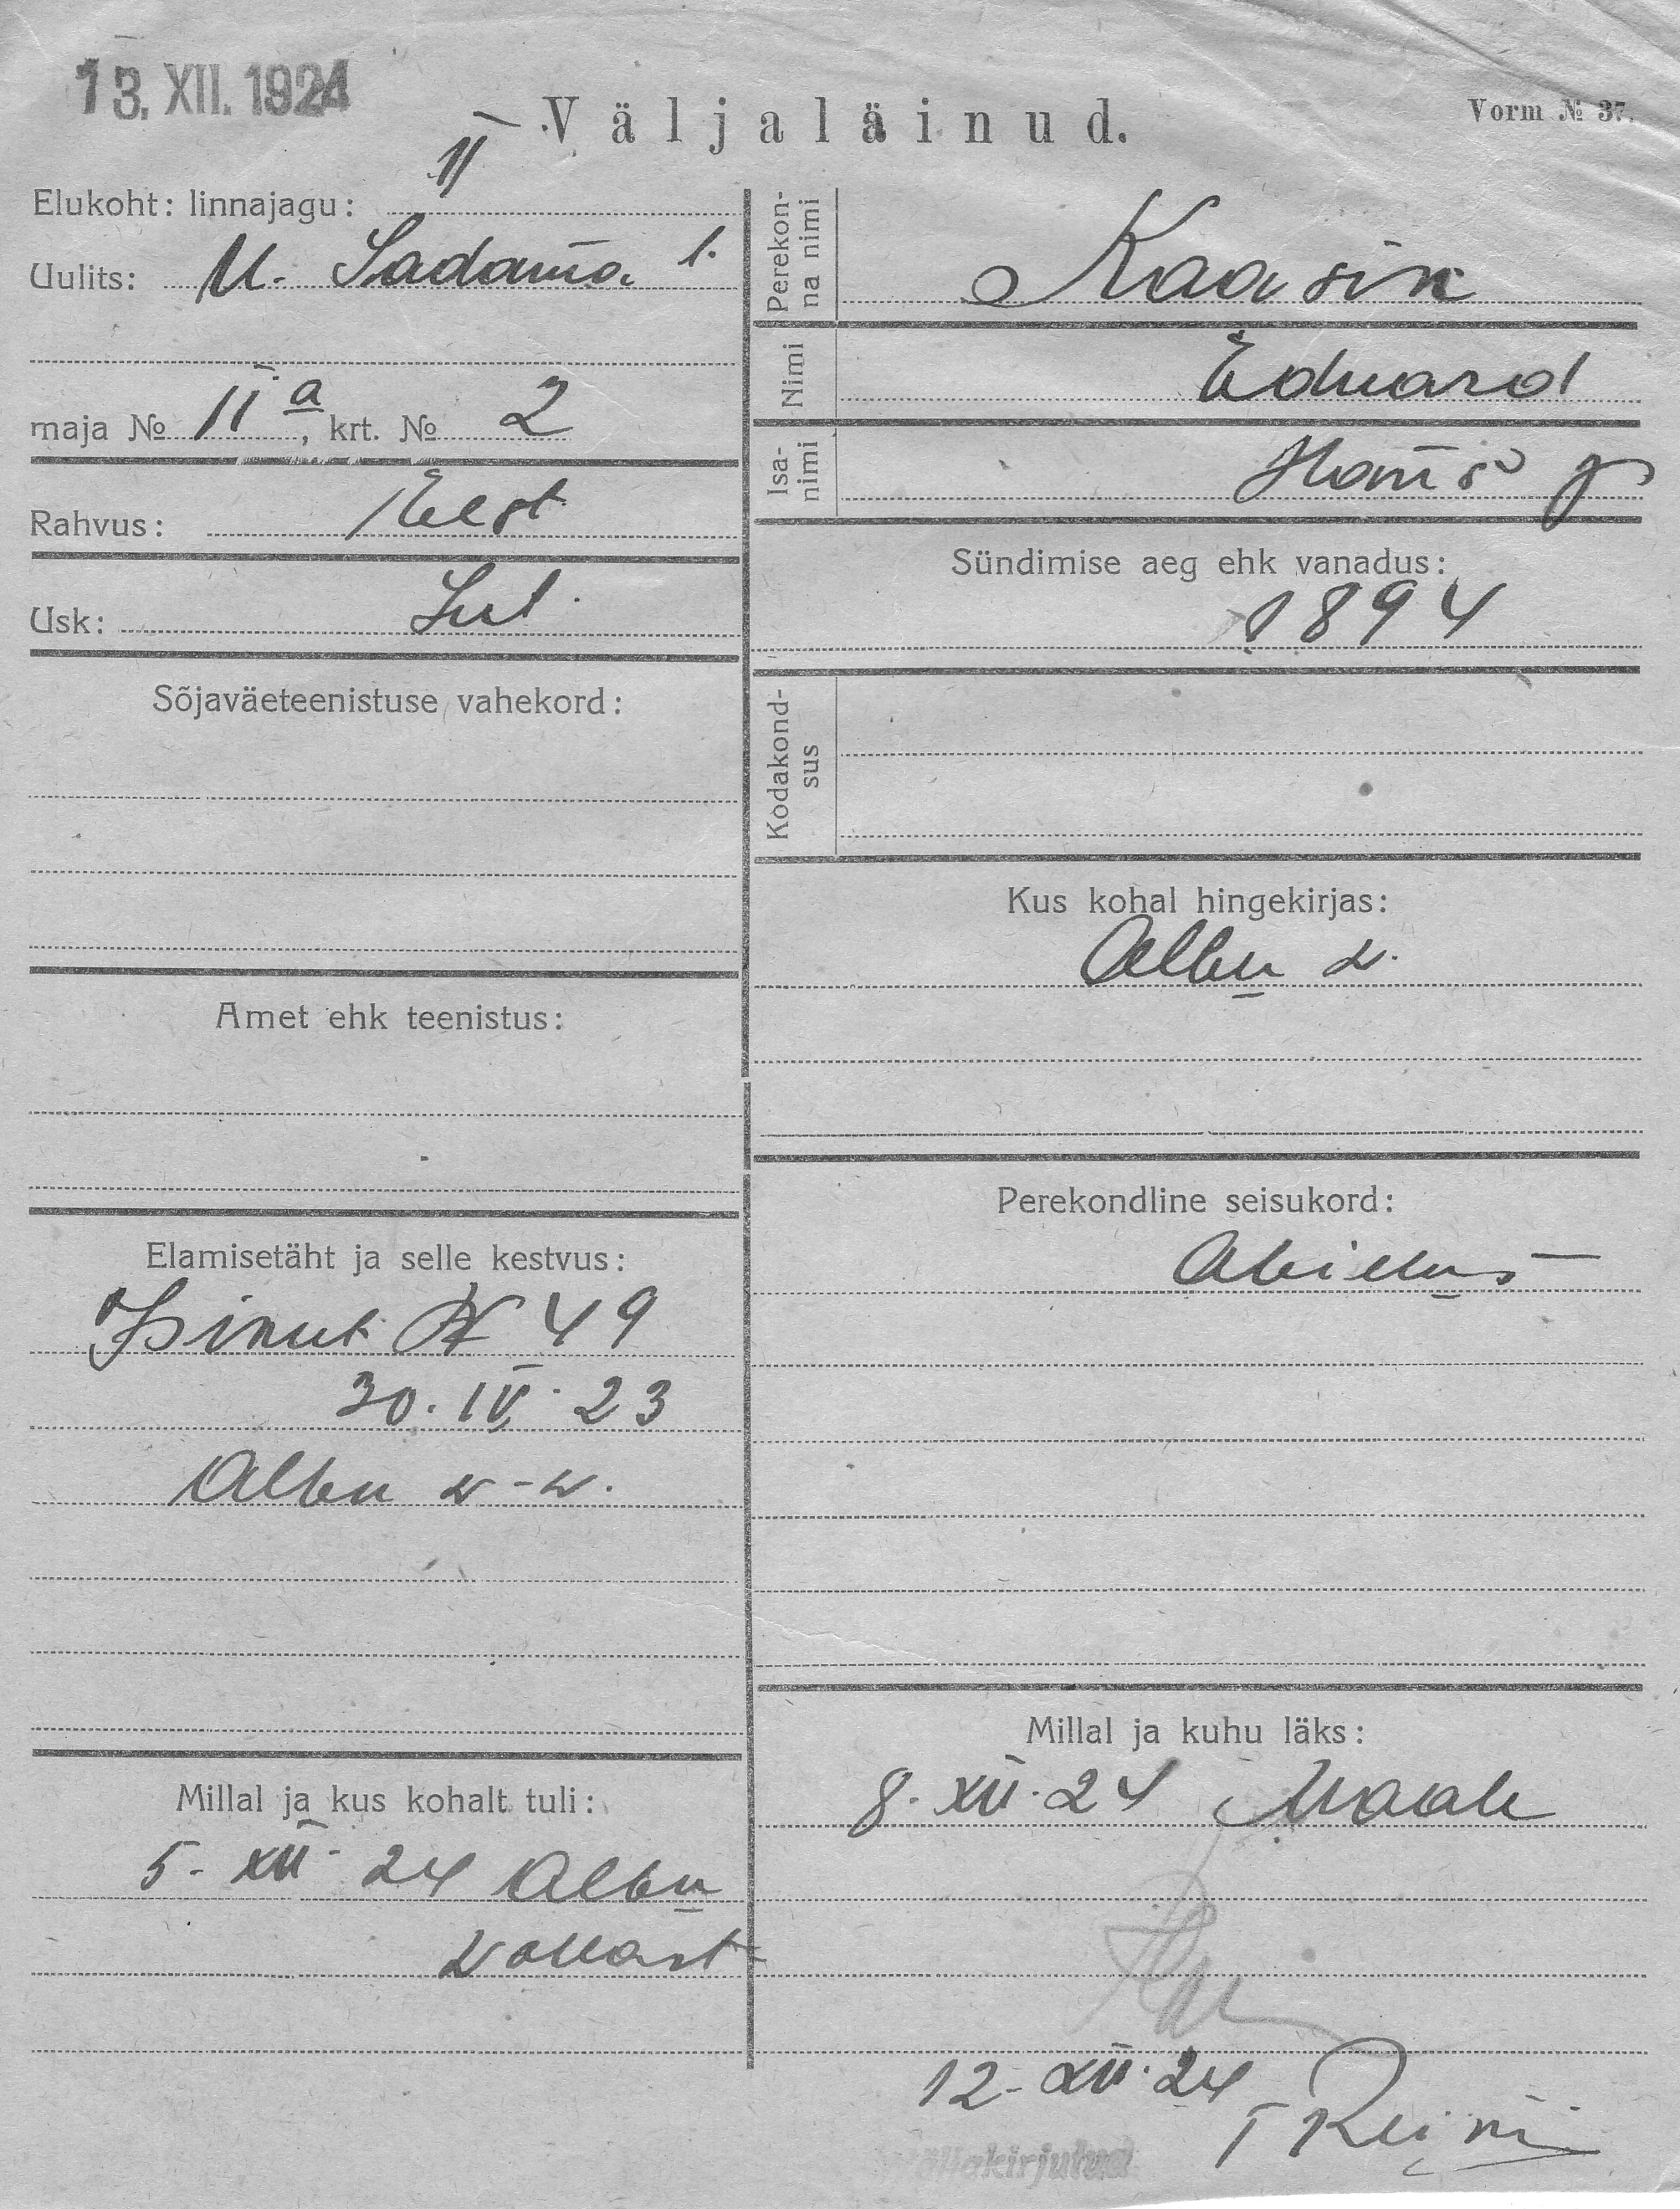 13. XII. 1924
Väljaläinud.
Vorm № 37.
Elukoht: linnajagu: II
Uulits: U. Sadama t.
maja № 11 a, krt. № 2
Rahvus: Eest
Usk: Lut.
Sõjaväeteenistuse vahekord:
Amet ehk teenistus:
Elamisetäht ja selle kestvus:
Isikut № 49
30. IV. 23
Albu v-v.
Millal ja kus kohalt tuli:
5. XII 24 Albu
vallast
Perekonna nimi Kaasik
Nimi Eduard
Isanimi Hans p
Sündimise aeg ehk vanadus:
1894
Kodakondsus
Kus kohal hingekirjas:
Albu v.
Perekondline seisukord:
Abielus
Millal ja kuhu läks:
8. XII. 24 Maale
12. XII. 24